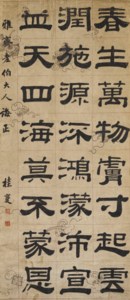 春生萬物膚寸起雲
潤施源深鴻蒙沛宣
天四海莫不蒙恩
老伯大人誨正
桂馥